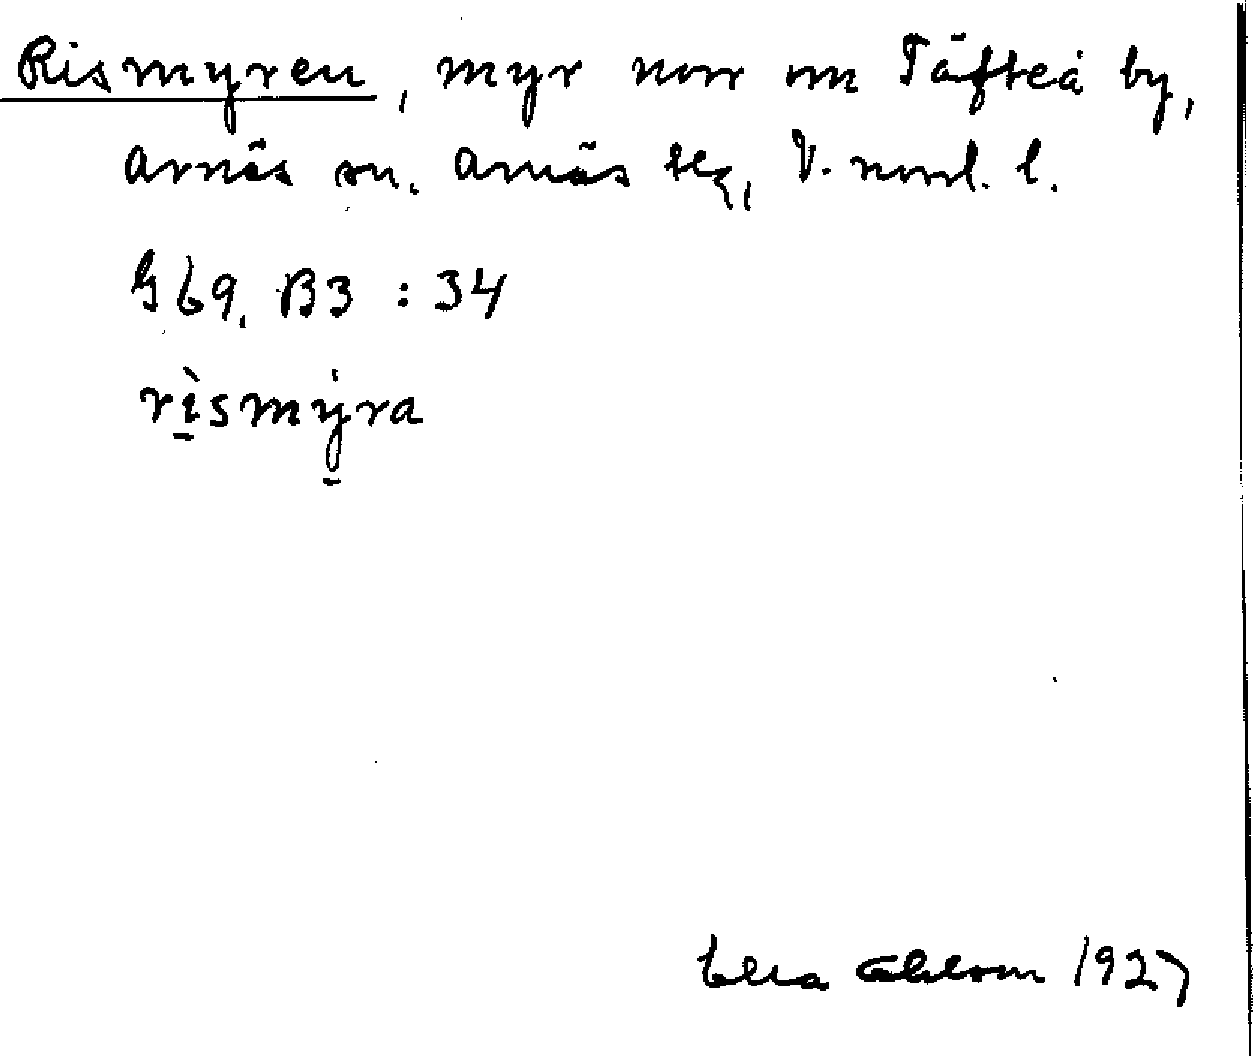 Rismyren, myr norr om Täfteå by,
Arnäs sn. Arnäs tg, V. norrl. l.
G 69. B3 : 34
rìsmy̍ra
1927